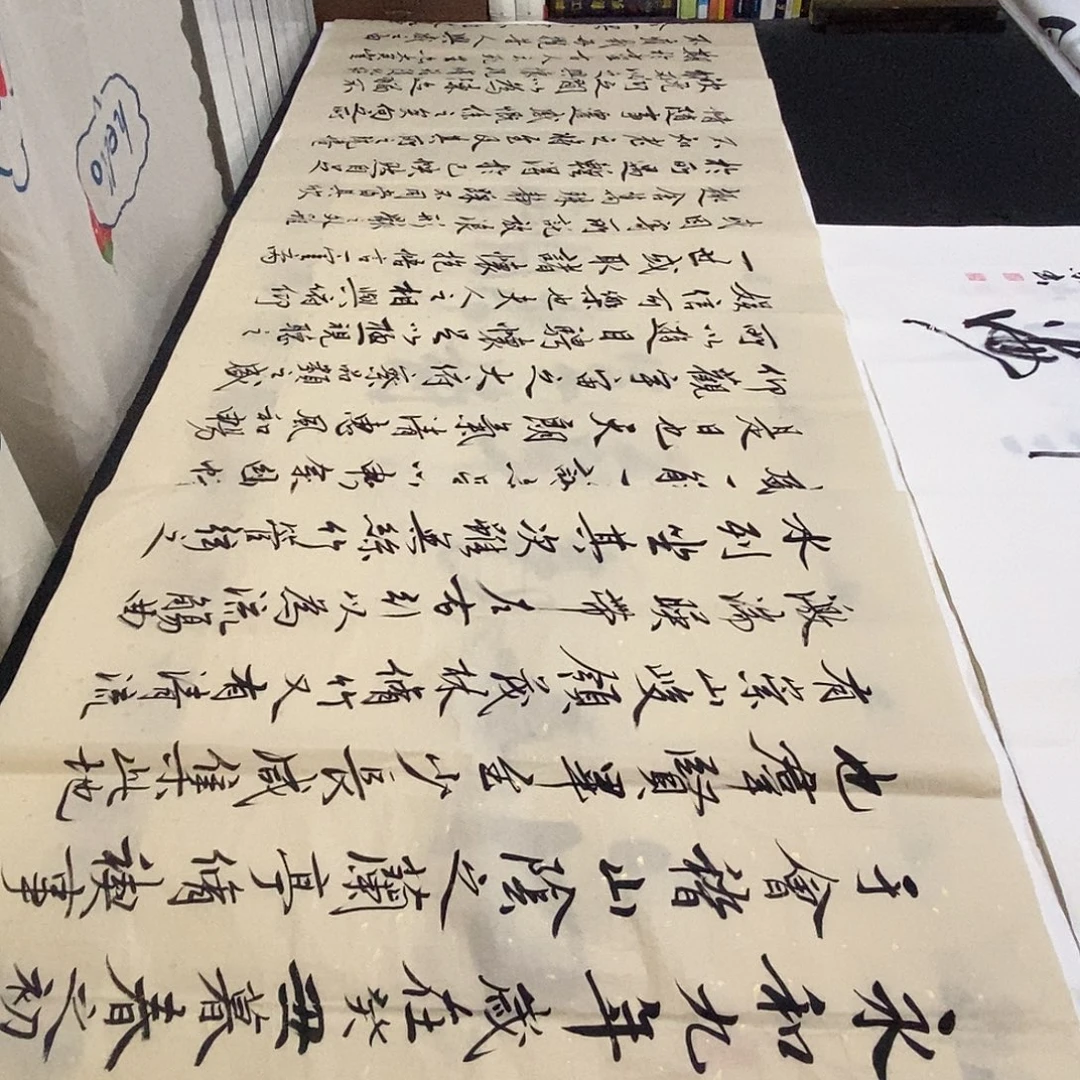 永和九年歲在癸丑暮春之初
于會稽山陰之蘭亭脩禊事
也群賢畢至少長咸集此地
有崇山峻領茂林脩竹又有清流
激湍映帶左右引以為流觴曲
水列坐其次雖無絲竹管弦之
盛一觴一詠亦足以暢叙幽情
是日也天朗氣清惠風和暢
仰觀宇宙之大俯察品類之盛
所以遊目騁懷足以極視聽之
娛信可樂也夫人之相與俯仰
一世或取諸懷抱悟言一室之內
或因寄所託放浪形骸之外雖
趣舍萬殊靜躁不同當其欣
於所遇暫得於己快然自足
不知老之將至及其所之既惓
情隨事遷感慨係之矣向之所
欣俛仰之間以為陳迹猶不
hello